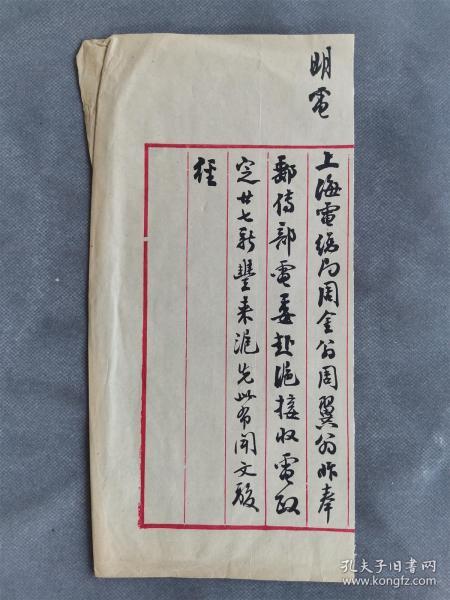 明電
上海電總局周金翁周翼翁昨奉
郵傳部電委赴滬接收電政
定廿七新豐來滬先此布聞文駿
徑
孔夫子旧书网
kongfz.com